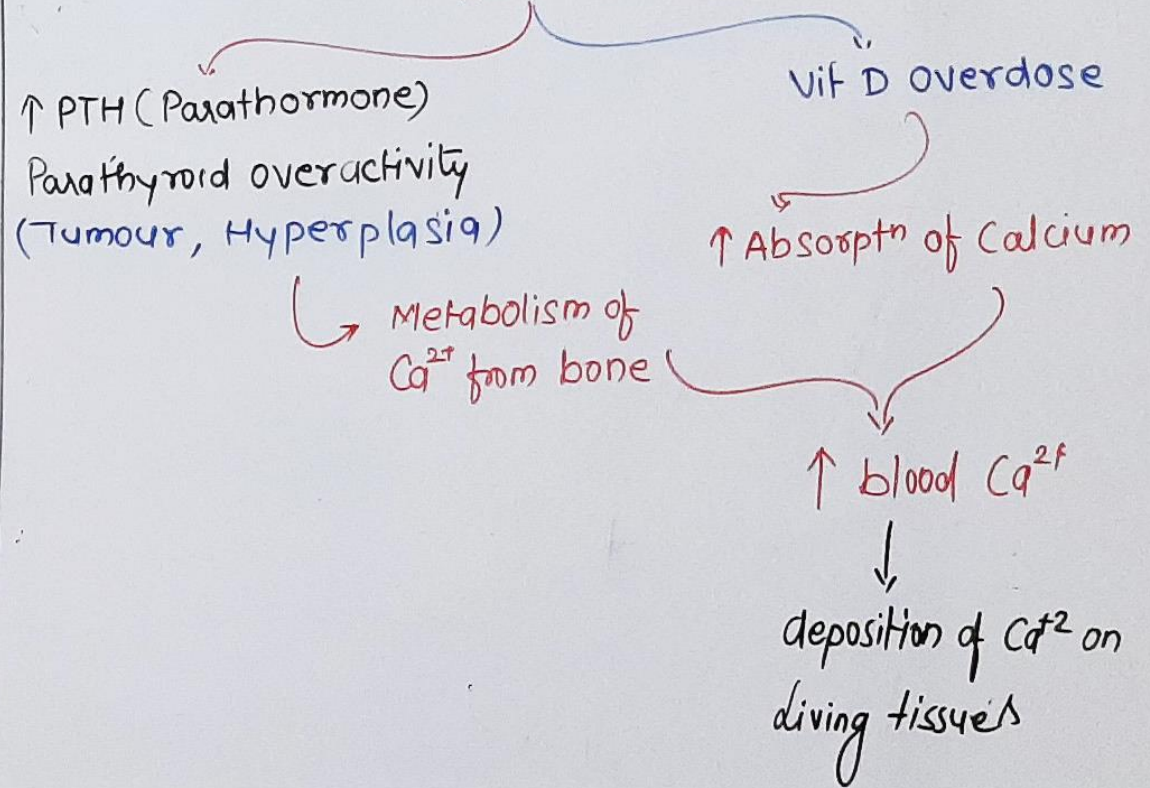 ↑ PTH (Parathormone)
Parathyroid overactivity
(Tumour, Hyperplasia)
Metabolism of
Ca²⁺ from bone
Vit D overdose
↑ Absorptⁿ of Calcium
↑ blood Ca²⁺
deposition of Ca⁺² on
living tissues